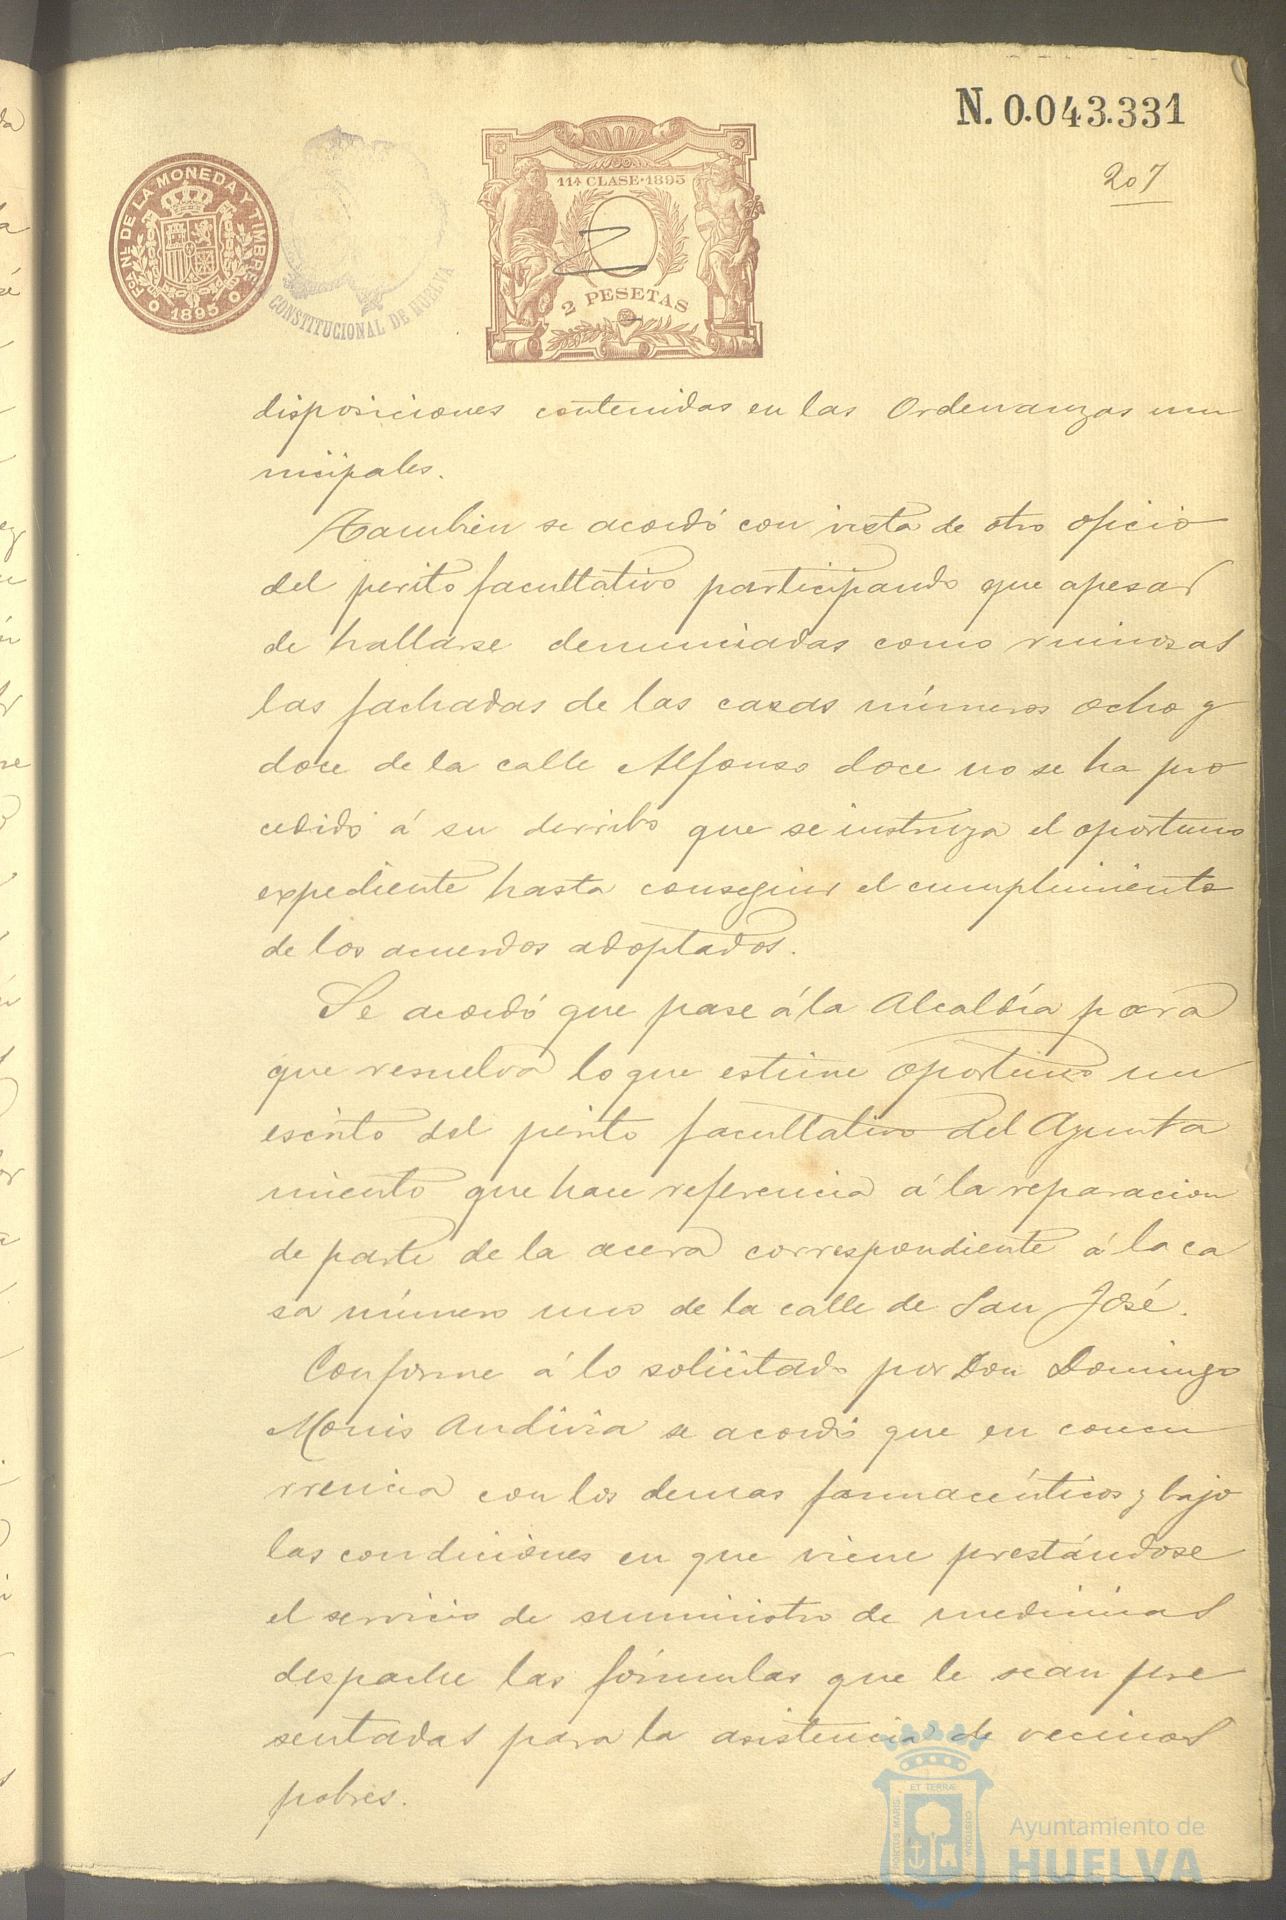 N. 0.043.331
207
FCA. NL. DE LA MONEDA Y TIMBRE
1895
CONSTITUCIONAL DE HUELVA
11ª CLASE·1895
2 PESETAS
disposiciones contenidas en las Ordenanzas mu
nicipales.
Tambien se acordó con vista de otro oficio
del perito facultativo participando que apesar
de hallarse denunciadas como ruinosas
las fachadas de las casas números ocho y
doce de la calle Alfonso doce no se ha pro
cedido á su derribo que se instruya el oportuno
expediente hasta conseguir el cumplimiento
de los acuerdos adoptados.
Se acordó que pase á la Alcaldía para
que resuelva lo que estime oportuno un
escrito del perito facultativo del Ayunta
miento que hace referencia á la reparacion
de parte de la acera correspondiente á la ca
sa número uno de la calle de San José.
Conforme á lo solicitado por Don Domingo
Monis Andivia se acordó que en concu
rrencia con los demas farmacéuticos y bajo
las condiciones en que viene prestándose
el servicio de suministro de medicinas
despache las fórmulas que le sean pre
sentadas para la asistencia de vecinos
pobres.
PORTUS MARIS ET TERRÆ CUSTODIA
Ayuntamiento de
HUELVA